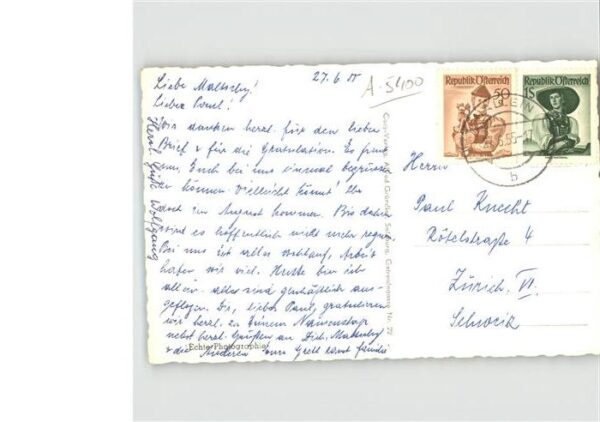 27.6.55
A-5400
Liebe Maltschy!
Lieber Paul!
Wir danken herzl. für den lieben
Brief & für die Gratulation. Es freut
uns, Euch bei uns einmal begrüssen
zu können. Vielleicht könnt Ihr
doch im August kommen. Bis dahin
wird es hoffentlich nicht mehr regnen.
Bei uns ist alles wohlauf, Arbeit
haben wir viel. Heute bin ich
allein. alles sind geschäftlich aus-
geflogen. Dir, lieber Paul, gratulieren
wir herzl. zu Deinem Namenstage
nebst herzl. Grüßen an Dich,
& die Anderen von Gretl samt Familie
Herzl. Grüße Wolfgang
Echte Photographie
Salzburg, Getreidegasse Nr. 22
Republik Österreich
50
Republik Österreich
1S
b
Herrn
Paul Knecht
Rötelstraße 4
Zürich, VI.
Schweiz